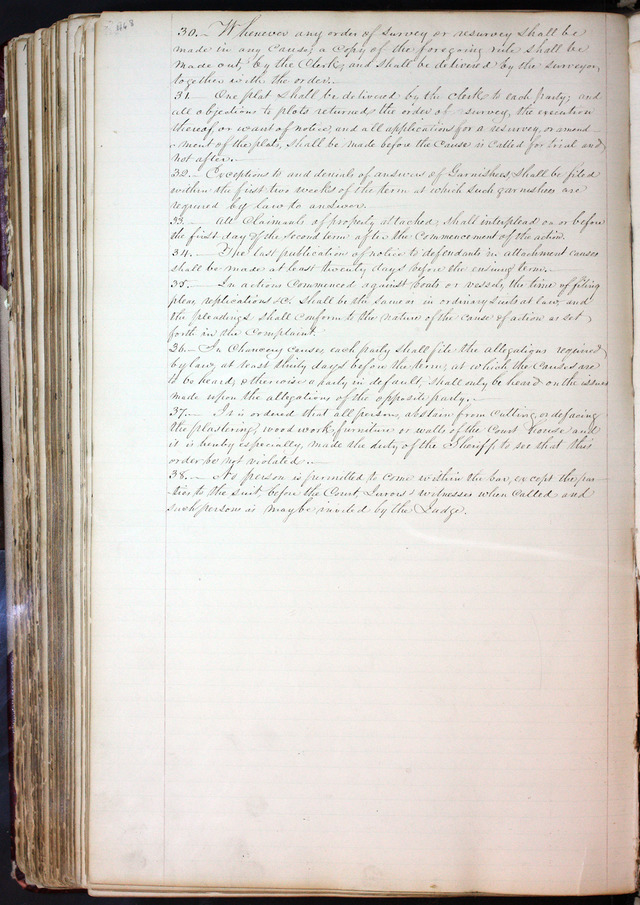 468
30.— Whenever any order of survey or resurvey shall be
made in any cause, a copy of the foregoing rule shall be
made out by the Clerk, and shall be delivered by the surveyor,
together with the order.—
31.— One plat shall be delivered by the clerk to each party; and
all objections to plats returned, the order of survey, the execution
thereof, or want of notice, and all applications for a resurvey, or amend-
-ment of the plats, shall be made before the Cause is called for trial and
not after.—
32.— Exceptions to and denials of answers of Garnishees, shall be filed
within the first two weeks of the term at which such garnishees are
required by law to answer.
33.— All Claimants of property attached, shall interplead on or before
the first day of the second term after the Commencement of the action.
34.— The last publication of notice to defendants in attachment causes
shall be made at least twenty days before the ensuing term.—
35.— In actions Commenced against boats or vessels, the time of filing
pleas, replications &c. shall be the same as in ordinary suits at law, and
the pleadings shall conform to the nature of the cause of action as set
forth in the Complaint.
36.— In Chancery causes, each party shall file the allegations required
by law, at least thirty days before the term, at which the Causes are
to be heard, otherwise a party in default, shall only be heard on the issues
made upon the allegations of the opposite party.—
37.— It is ordered that all persons, abstain from Cutting, or defacing
the plastering, wood work, furniture or walls of the Court House and
it is hereby especially, made the duty of the Sheriff to see that this
order be not violated.—
38.— No person is permitted to come within the bar, except the par-
ties to the suit before the Court, Jurors & witnesses when Called and
such persons as may be invited by the Judge.